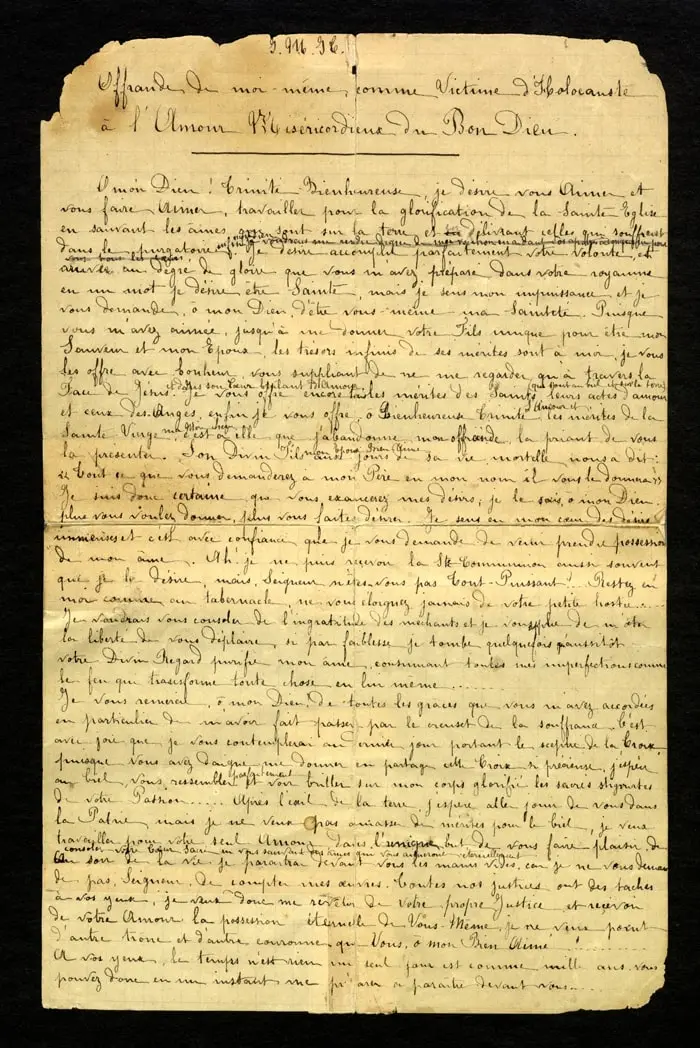 J.M.J.T.
Offrande de moi-même, comme Victime d'Holocauste
à l'Amour Miséricordieux du Bon Dieu.
O mon Dieu ! Trinité Bienheureuse, je désire vous Aimer et
vous faire Aimer, travailler pour la glorification de la Sainte Eglise
en sauvant les âmes qui sont sur la terre et délivrant celles qui souffrent
dans le purgatoire. Je désire accomplir parfaitement votre volonté, et
arriver au degré de gloire que vous m'avez préparé dans votre royaume
en un mot je désire être Sainte, mais je sens mon impuissance et je
vous demande, ô mon Dieu, d'être vous-même ma Sainteté. Puisque
vous m'avez aimée, jusqu'à me donner votre Fils unique pour être mon
Sauveur et mon Epoux, les trésors infinis de ses mérites sont à moi, je vous
les offre avec bonheur, vous suppliant de ne me regarder qu'à travers la
Face de Jésus et dans son Cœur brûlant d'Amour
Je vous offre encore tous les mérites des Saints (qui sont au Ciel et sur la terre) leurs actes d'amour
et ceux des Anges, enfin je vous offre, ô Bienheureuse Trinité l'Amour et les mérites de la
Sainte Vierge ma Mère chérie c'est à elle que j'abandonne mon offrande la priant de vous
la présenter. Son Divin Fils, mon Epoux Bien-Aimé, aux jours de sa vie mortelle nous a dit :
"Tout ce que vous demanderez à mon Père en mon nom il vous le donnera"
Je suis donc certaine que vous exaucerez mes désirs, je le sais, ô mon Dieu
plus vous voulez donner, plus vous faites désirer. Je sens en mon cœur des désirs
immenses et c'est avec confiance que je vous demande de venir prendre possession
de mon âme. Ah ! je ne puis recevoir la Ste Communion aussi souvent
que je le désire, mais, Seigneur n'êtes-vous pas Tout-Puissant ?... Restez en
moi comme au tabernacle, ne vous éloignez jamais de votre petite hostie.....
Je voudrais vous consoler de l'ingratitude des méchants et je vous supplie de m'ôter
la liberté de vous déplaire, si par faiblesse je tombe quelquefois qu'aussitôt
votre Divin Regard purifie mon âme, consumant toutes mes imperfections comme
le feu qui transforme toute chose en lui-même......
Je vous remercie, ô mon Dieu, de toutes les grâces que vous m'avez accordées
en particulier de m'avoir fait passer par le creuset de la souffrance. C'est
avec joie que je vous contemplerai au dernier jour portant le sceptre de la Croix
puisque vous avez daigné me donner en partage cette Croix si précieuse, j'espère
au Ciel, vous ressembler parfaitement et voir briller sur mon corps glorifié les sacrés stigmates
de votre Passion..... Après l'exil de la terre, j'espère aller jouir de vous dans
la Patrie mais je ne veux pas amasser de mérites pour le Ciel, je veux
travailler pour votre seul Amour dans l'unique but de vous faire plaisir de
consoler votre Cœur Sacré en vous sauvant des âmes qui vous aimeront éternellement
Au soir de la vie je paraîtrai devant vous les mains vides, car je ne vous demande
pas, Seigneur, de compter mes œuvres. Toutes nos justices ont des taches
à vos yeux, je veux donc me revêtir de votre propre Justice et recevoir
de votre Amour la possession éternelle de Vous-Même, je ne veux point
d'autre trône et d'autre couronne que Vous, ô mon Bien Aimé !......
A vos yeux, le temps n'est rien un seul jour est comme mille ans vous
pouvez donc en un instant me préparer à paraître devant vous.....